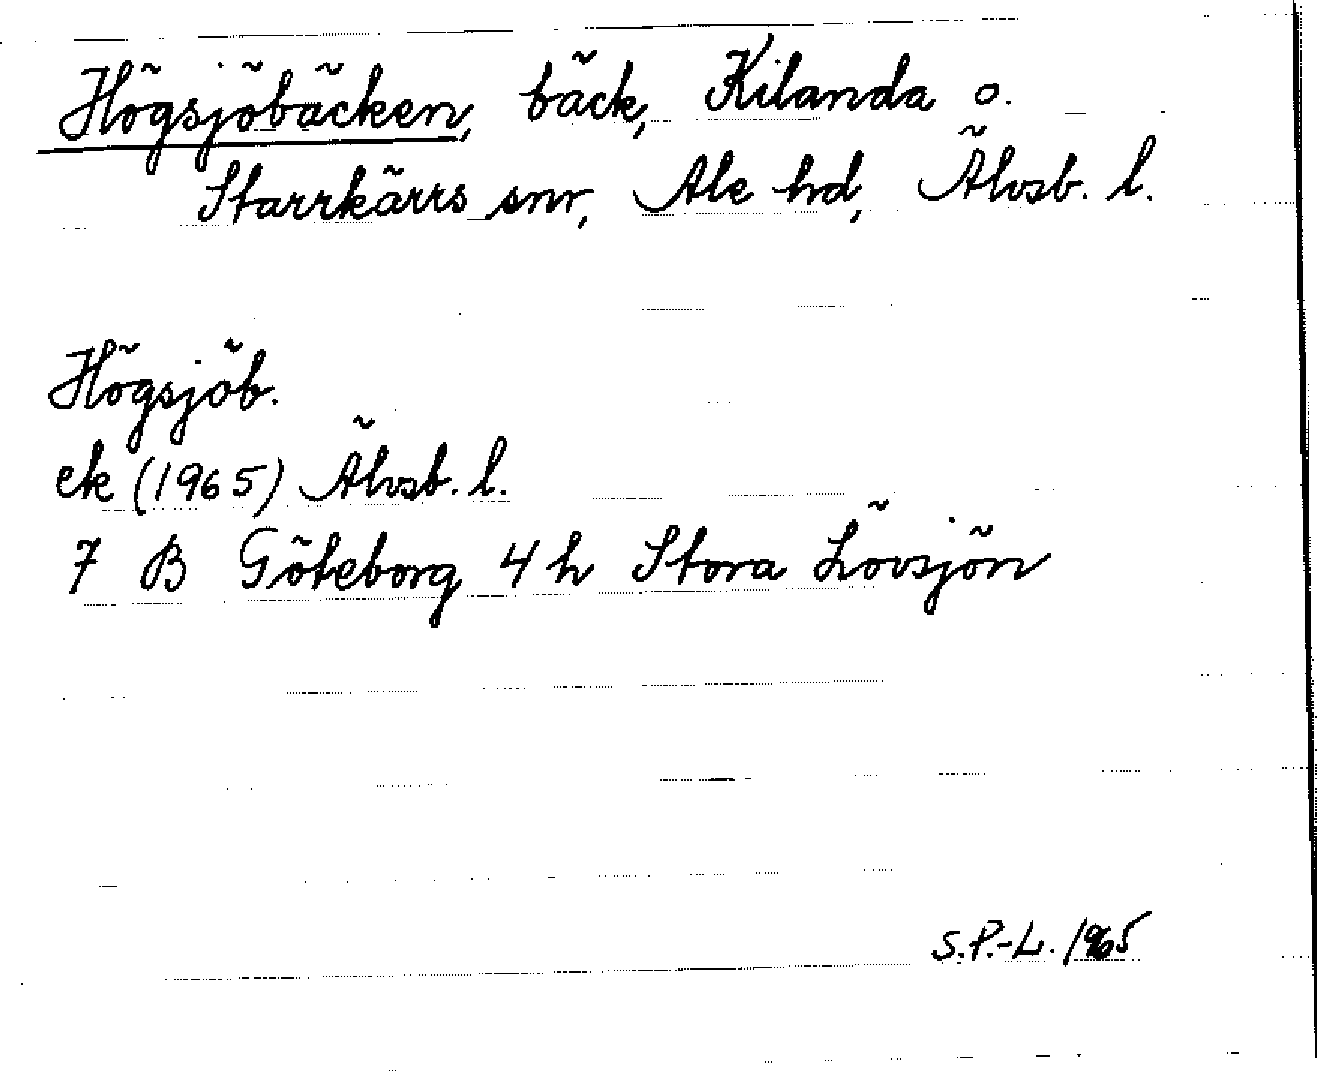 Högsjöbäcken, bäck, Kilanda o.
Starrkärrs snr, Ale hd, Älvsb. l.
Högsjöb.
ek (1965) Älvsb. l.
7 B Göteborg 4 h Stora Lövsjön
S.P.-L. 1965